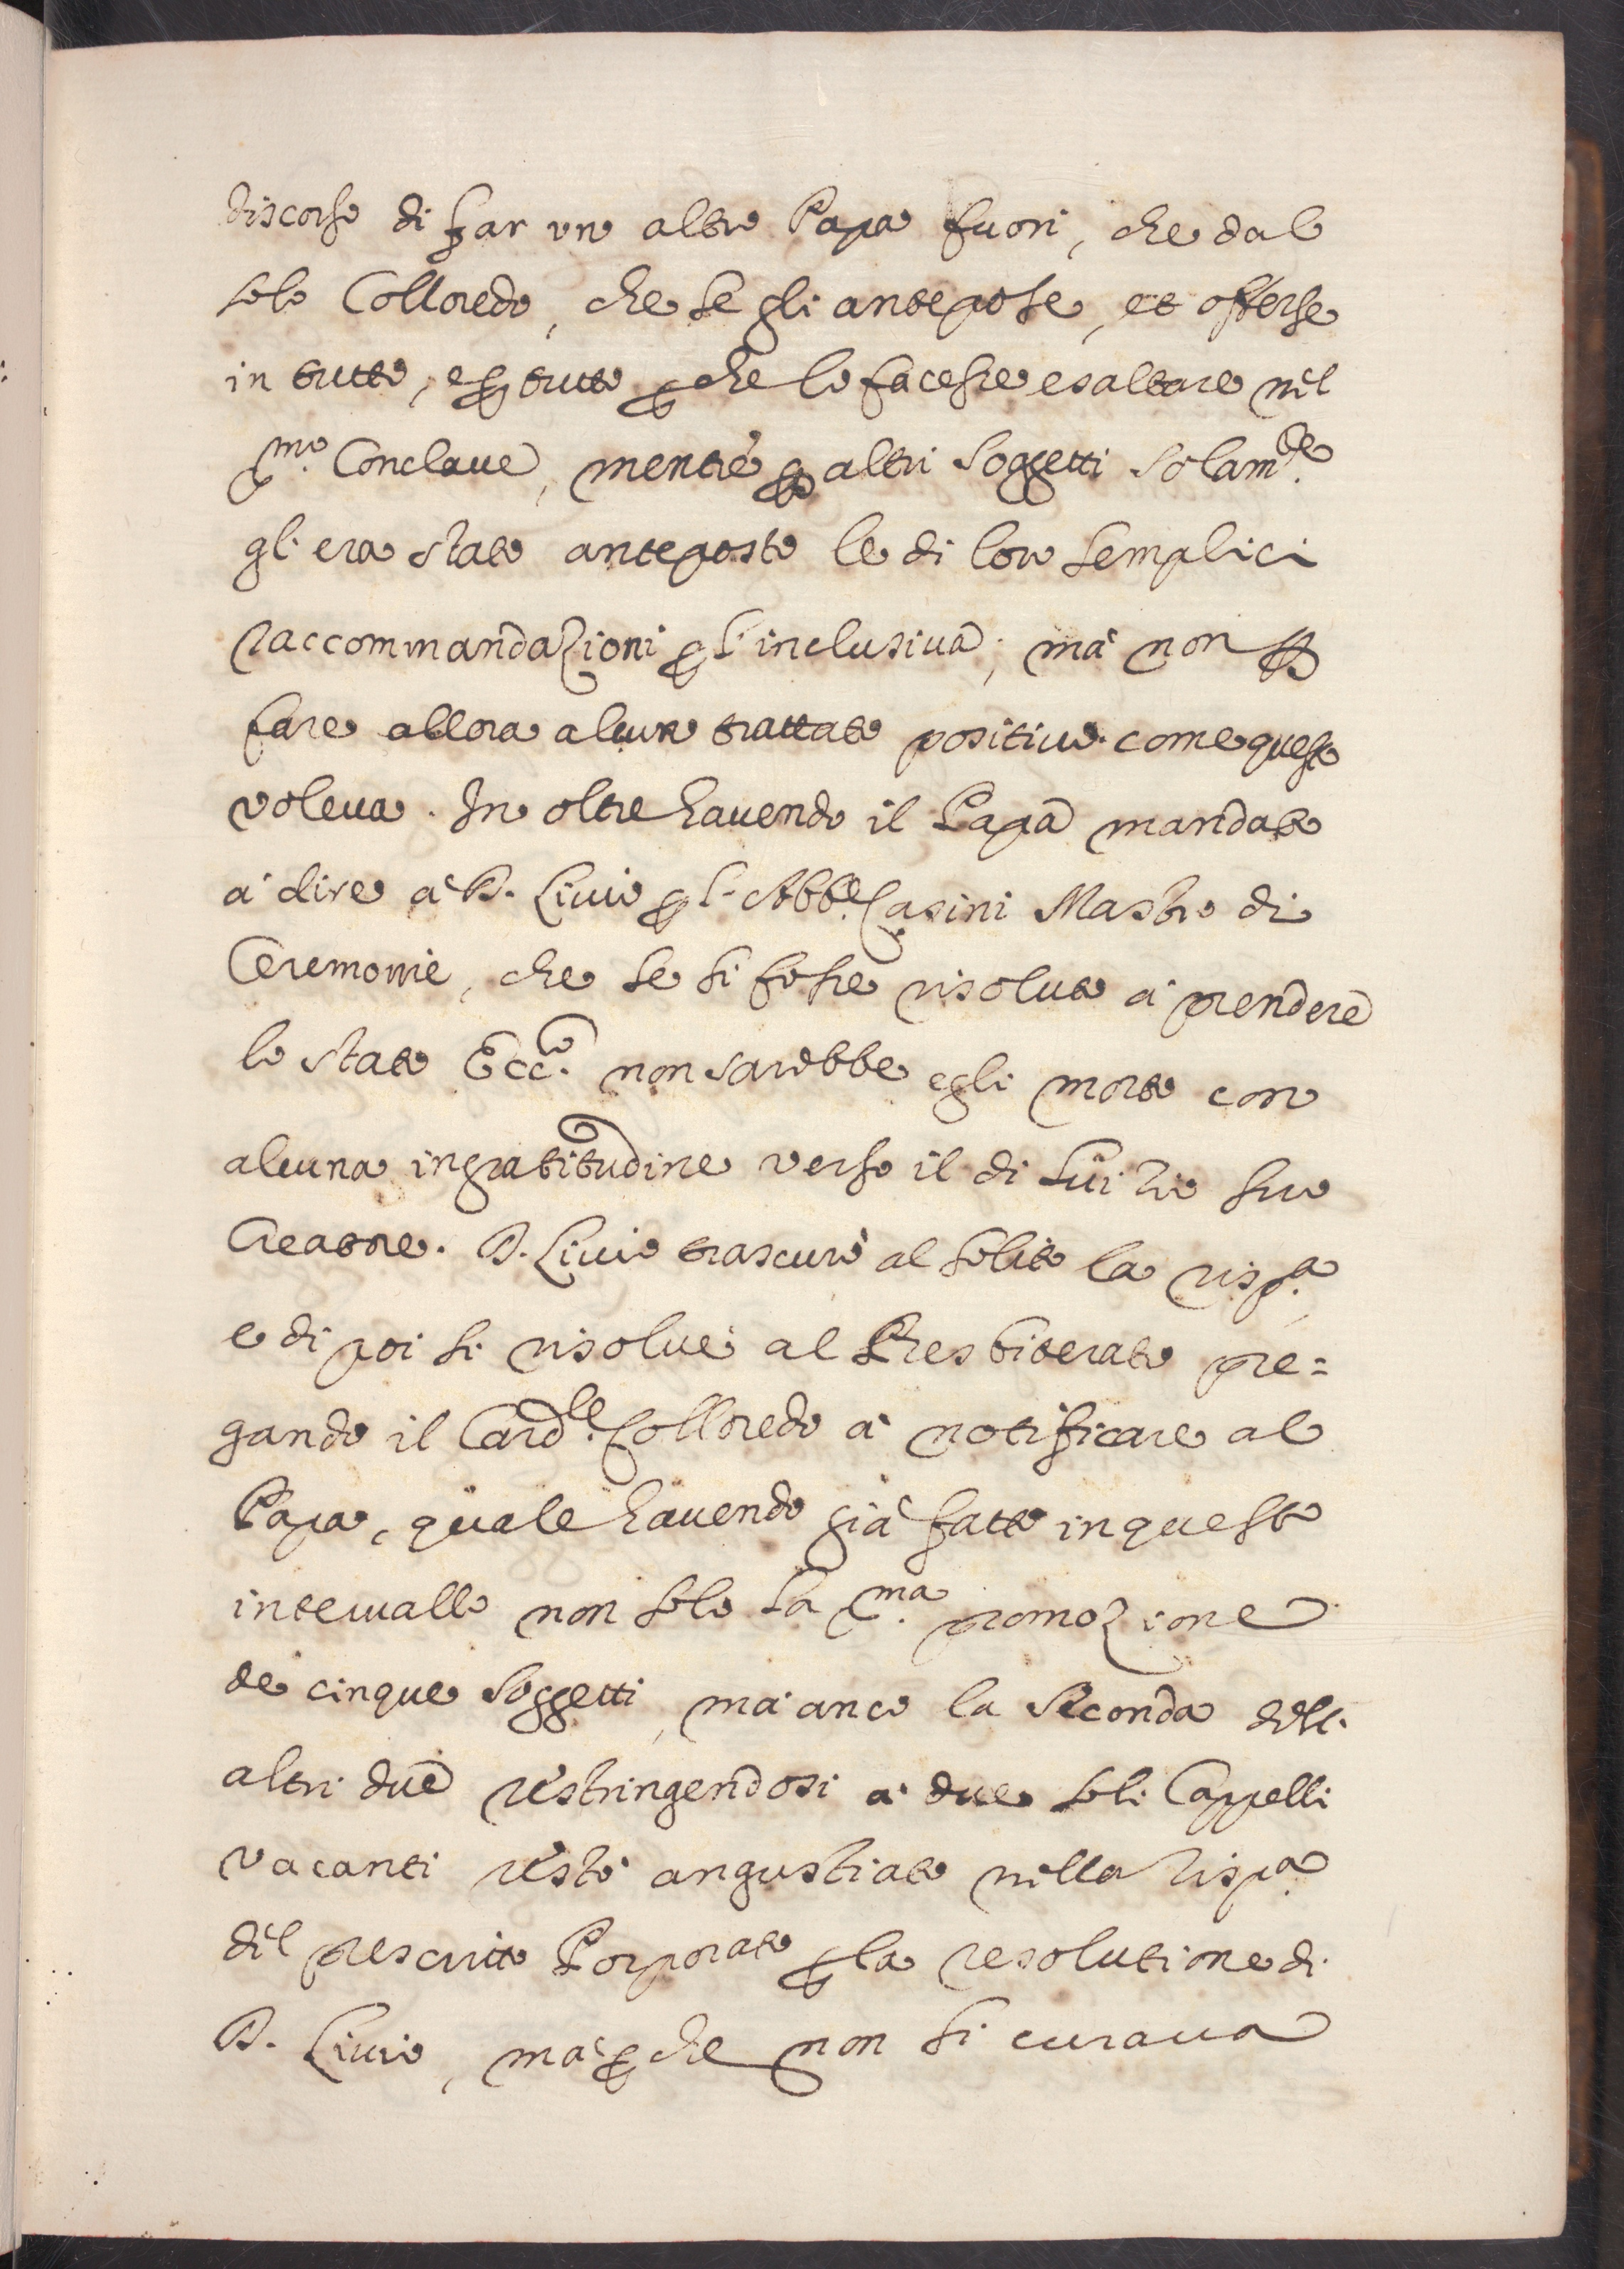 discorso di far un altro Papa fuori, che dal
solo Colloredo, che se gli antepose, et offerse
in tutto, e ꝑ tutto ꝑche lo facesse esaltare nel
pmo. Conclaue, mentre ꝑ altri Soggetti Solamte.
gl'era stato anteposto le di loro semplici
raccommandazioni ꝑ l'inclusiua; mà non ꝑ
fare allora alcun trattato positiuo. come questo
voleua. In oltre hauendo il Papa mandato
à dire à D. Liuio ꝑ l'Abbe. Casini Mastro di
Ceremonie, che se si fosse risoluto à prendere
lo stato Ecclo. non sarebbe egli morto con
alcuna ingratitudine verso il di lui zio suo
Creatore. D. Liuio trascurò al solito la rispa.
e di poi si risoluè al Presbiterato pre=
gando il Cardle. Colloredo à notificare al
Papa, quale hauendo già fatto in questo
interuallo non solo la pma. promozione
de cinque Soggetti, mà anco la Seconda dell'
altri due restringendosi à due soli Cappelli
vacanti restò angustiato nella rispa.
del prescritto Porporato ꝑ la resolutione di
D. Liuio, mà ꝑche non si curaua